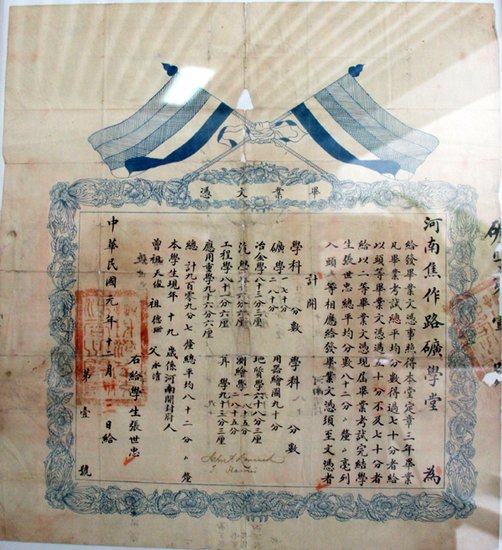 畢業文憑
河南焦作路礦學堂 為
給發畢業文憑事照得本堂定章三年畢業
凡畢業考試總平均分數得過七十分者給
以頭等畢業文憑過五十分不及七十分者
給以二等畢業文憑現屆畢業考試完結學
生張世忠總平均分數八十二分 釐 毫列
入頭 等相應給發畢業文憑須至文憑者
計開
學科 分數 學科 分數
礦學 七十 分 用器繪圖九十分
冶金學八十分三厘 地質學六十八分三厘
汽學 測繪學 八十五分
工程學八十分六厘 算學九十三分三厘
應用重學八十六分六厘
總計九百零九分七釐總平均八十二分 釐
本學生現年十九歲係河南開封府人
曾祖天俊 祖德 父永清
右給學生張世忠
中華民國元年十二月 日給
第壹號